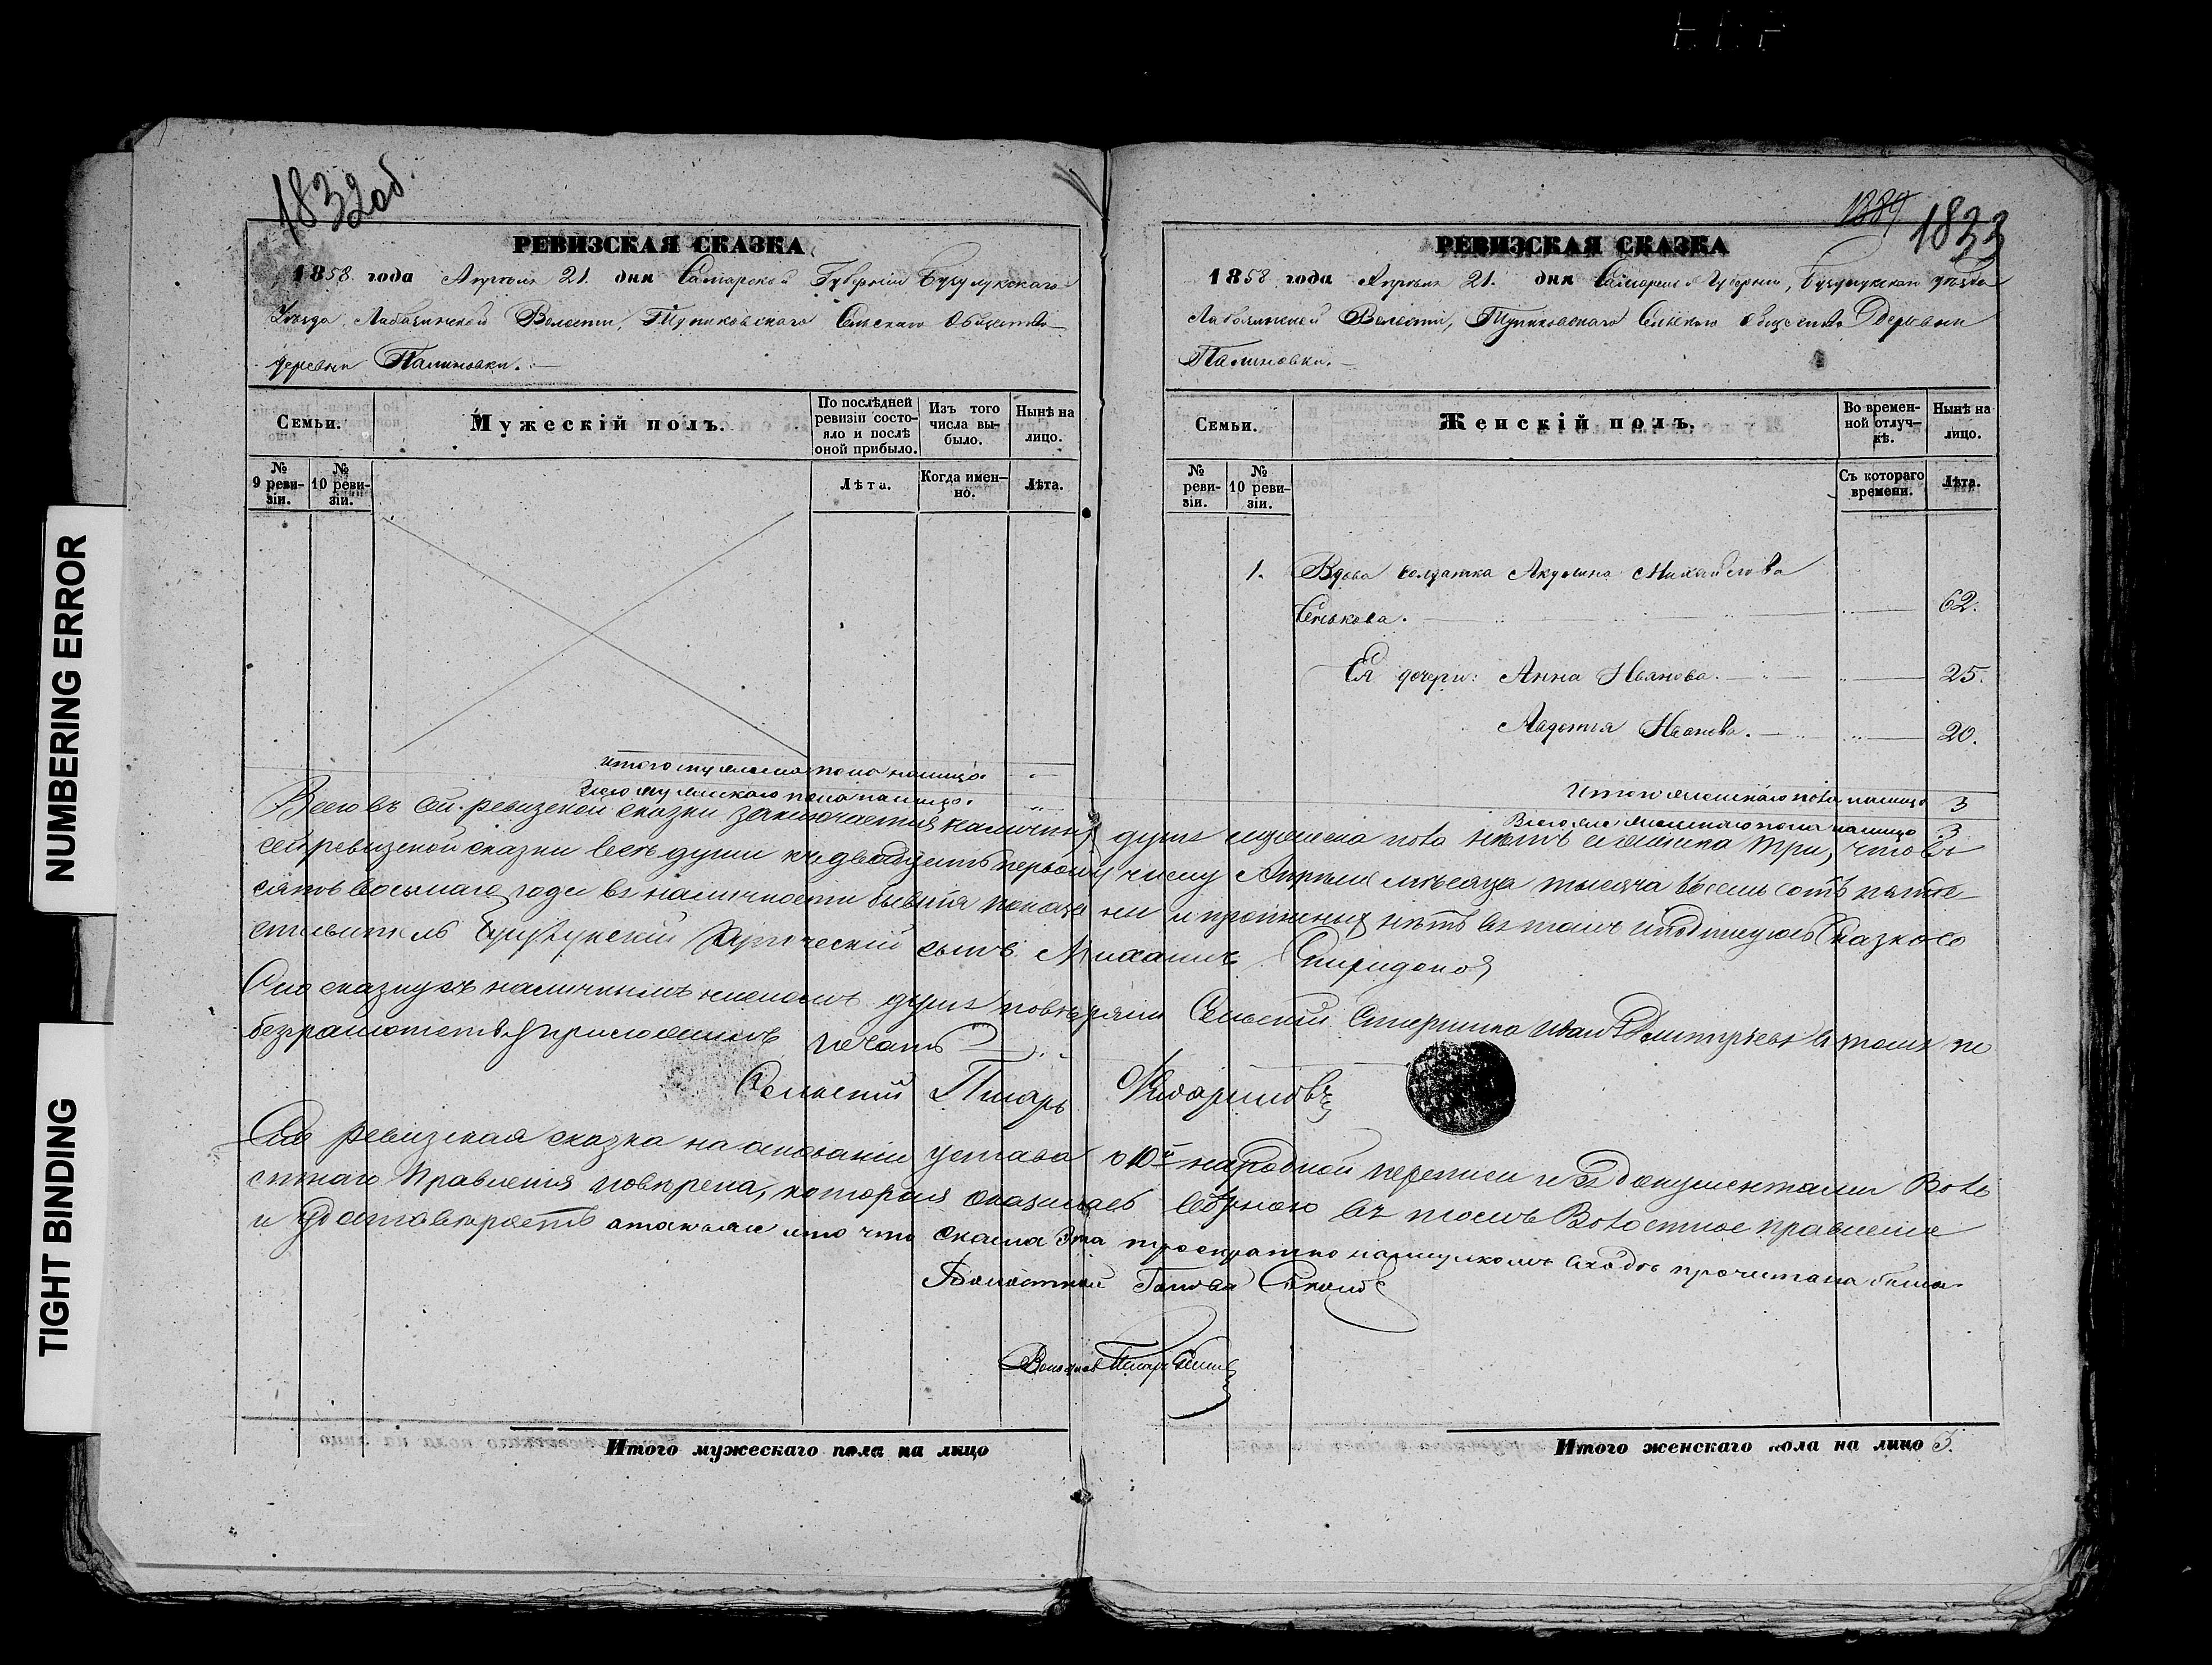 NUMBERING ERROR
TIGHT BINDING
1832 об.
РЕВИЗСКАЯ СКАЗКА
1858 года Апрѣля 21. дня Самарской Губерніи Бузулукскаго
Уѣзда, Лабазинской Волости, Тупиковскаго Сельскаго Общества
деревни Палимовки.
Семьи.
Мужескій полъ.
По послѣдней
ревизіи состо-
яло и послѣ
оной прибыло.
Изъ того
числа вы-
было.
Нынѣ на
лицо.
№
9 реви-
зіи.
№
10 реви-
зіи.
Лѣта.
Когда имен-
но.
Лѣта.
Итого мужеска пола налицо
Всего мужескаго пола налицо.
1889
1833
РЕВИЗСКАЯ СКАЗКА
1858 года Апрѣля 21. дня Самарской Губерніи, Бузулукскаго уѣзда
Лабазинской Волости, Тупиковскаго Сельскаго общества Деревни
Палимовки.
Семьи.
Женскій полъ.
Во времен-
ной отлуч-
кѣ.
Нынѣ на
лицо.
№
реви-
зіи.
№
10 реви-
зіи.
Съ котораго
времени.
Лѣта.
1. Вдова солдатка Акулина Михайлова
Сенькова. 62.
Ея дочери: Анна Иванова. 25.
Авдотья Иванова. 20.
Итого женскаго пола налицо 3
Всего женскаго пола налицо 3.
Всего въ сей ревизской сказки заключается наличныхъ душъ мужеска пола нѣтъ и женска три, что въ
сей ревизской сказки всѣ души къ двадцать первому числу Апрѣля мѣсяца тысяча восемь сотъ пятьде-
сятъ восьмаго года въ наличности бывшія показаны и прописныхъ нѣтъ въ томъ и подписуюсь Сказкосо
ставитель Бузулукскій Купеческій сынъ Михаилъ Спиридонов
Сію сказку съ наличнымъ числомъ душъ повѣрялъ Сельскій Старшина Иван Дмитріевъ въ томъ по
безграмотству приложилъ печать
Сельскій Писарь
Сія ревизская сказка на основаніи устава о 10й народной переписи и съ документами Воло
стнаго Правленія повѣрена, которая оказалась вѣрною въ томъ Волостное правленіе
и удостовѣряетъ а также и то что сказка эта троекратно на мирскомъ сходѣ прочитана была.
Волостной Голова
Волостной Писарь
Итого мужескаго пола на лицо
Итого женскаго пола на лицо 3.